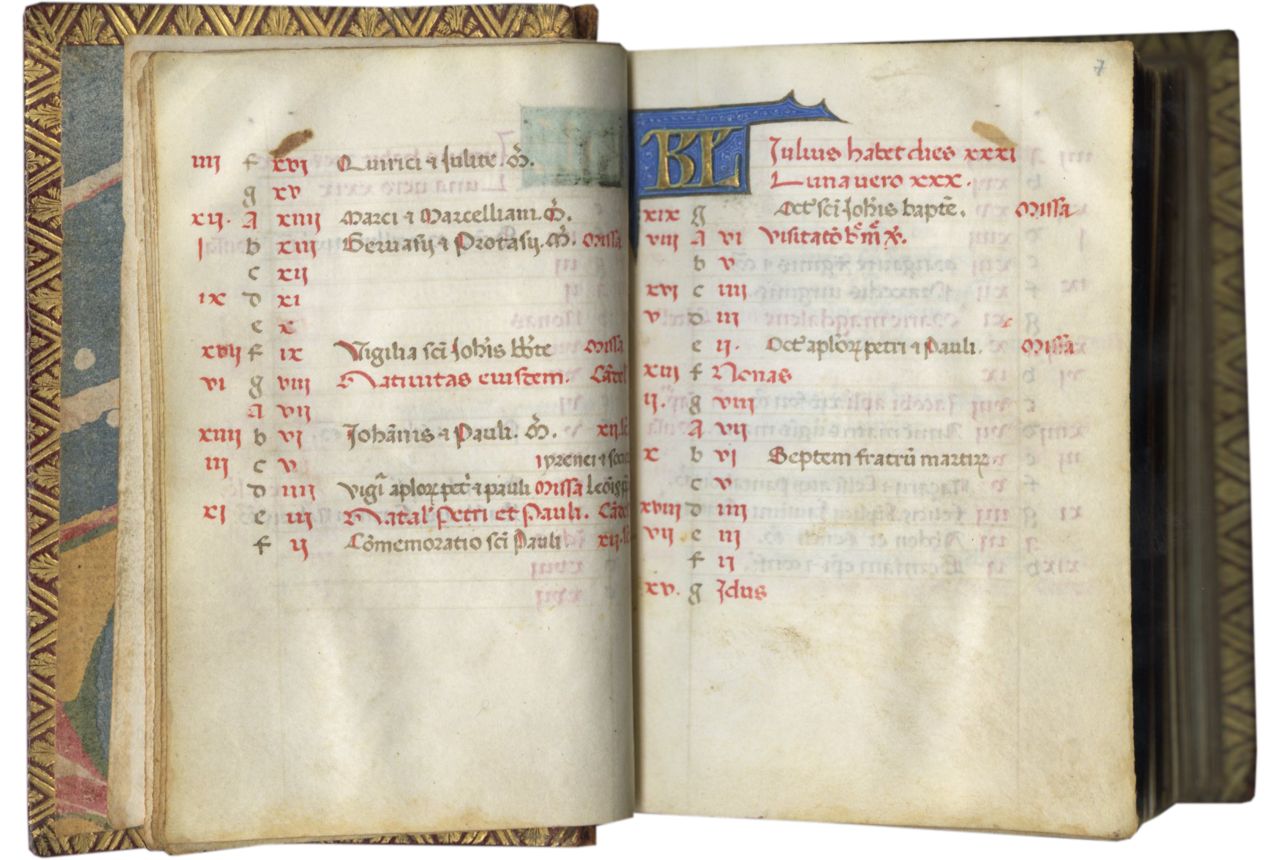 iiij f xvj Quirici ⁊ Julite. m̄.
g xv
xij. A xiiij Marci ⁊ Marcelliani. m̄.
j b xiij Gervasij ⁊ Protasij. m̄. Missa
c xij
ix d xj
e x
xvij f ix Vigilia sc̄i Joh̄is bb̄te Missa
vj g viij Nativitas eiusdem. Cādel
A vij
xiiij b vj Johānis ⁊ Pauli. m̄. xij. lc̄
iij c v yrenei ⁊ soc
d iiij vigl̄ aplor̄ pet̄ ⁊ pauli Missa Leōis pp̄
xj e iij Natal̄ Petri et Pauli. Cādel
f ij Cōmemoratio sc̄i Pauli xij. lc̄
7
KL Julius habet dies xxxj
Luna uero xxx.
xix g Oct̄ sc̄i Joh̄is bapte. Missa
viij A vj Visitatō b̄ m̄ v̄.
b v
xvj c iiij
v d iij
e ij. Oct̄ aplor̄ petri ⁊ Pauli. Missa
xiij f Nonas
ij. g viij
A vij
x b vj Septem fratrū martir̄
c v
xviij d iiij
vij e iij
f ij
xv. g Idus